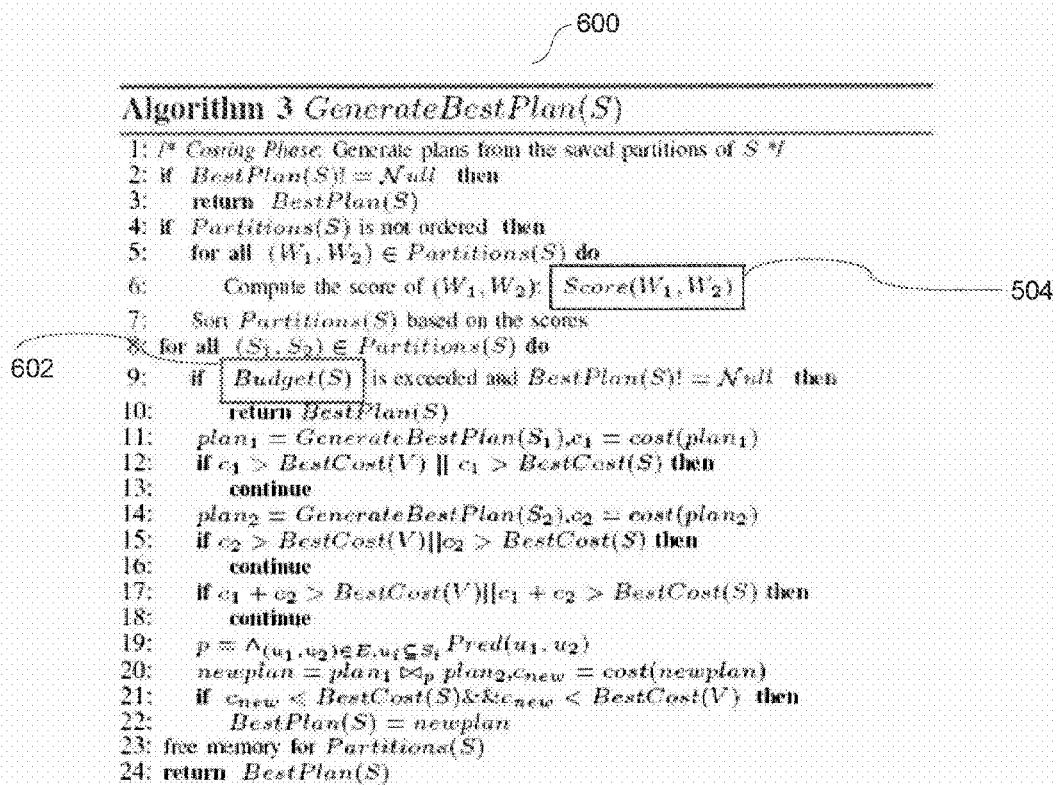 600
Algorithm 3 GenerateBestPlan(S)
1: /* Costing Phase: Generate plans from the saved partitions of S */
2: if BestPlan(S)! = Null then
3: return BestPlan(S)
4: if Partitions(S) is not ordered then
5: for all (W₁, W₂) ∈ Partitions(S) do
6: Compute the score of (W₁, W₂): Score(W₁, W₂)
504
7: Sort Partitions(S) based on the scores
8: for all (S₁, S₂) ∈ Partitions(S) do
602
9: if Budget(S) is exceeded and BestPlan(S)! = Null then
10: return BestPlan(S)
11: plan₁ = GenerateBestPlan(S₁),c₁ = cost(plan₁)
12: if c₁ > BestCost(V) || c₁ > BestCost(S) then
13: continue
14: plan₂ = GenerateBestPlan(S₂),c₂ = cost(plan₂)
15: if c₂ > BestCost(V)||c₂ > BestCost(S) then
16: continue
17: if c₁ + c₂ > BestCost(V)||c₁ + c₂ > BestCost(S) then
18: continue
19: p = ∧(u₁,u₂)∈E,uᵢ⊆Sᵢ Pred(u₁, u₂)
20: newplan = plan₁ ⋈ₚ plan₂,cₙₑw = cost(newplan)
21: if cₙₑw < BestCost(S)&&cₙₑw < BestCost(V) then
22: BestPlan(S) = newplan
23: free memory for Partitions(S)
24: return BestPlan(S)